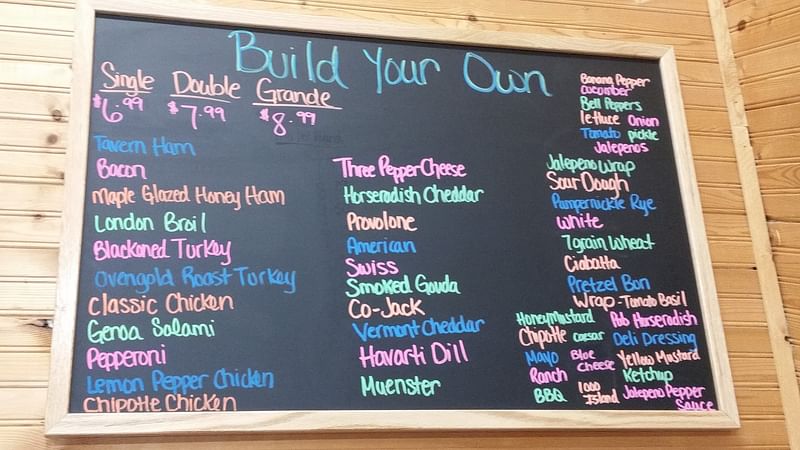 Build Your Own
Single Double Grande
$6.99 $7.99 $8.99
Tavern Ham
Bacon
Maple Glazed Honey Ham
London Broil
Blackened Turkey
Ovengold Roast Turkey
Classic Chicken
Genoa Salami
Pepperoni
Lemon Pepper Chicken
Chipotle Chicken
Three Pepper Cheese
Horserodish Cheddar
Provolone
American
Swiss
Smoked Gouda
Co-Jack
Vermont Cheddar
Havarti Dill
Muenster
Banana Pepper
cucomber
Bell Peppers
lettuce Onion
Tomato pickle
Jalepenos
Jalepeno Wrap
Sour Dough
Pumpernickle Rye
White
7 grain Wheat
Ciabatta
Pretzel Bun
Wrap - Tomato Basil
Honey Mustard Pub Horserodish
Chipotle caesar Deli Dressing
Mayo Bloe Cheese Yellow Mustard
Ranch Ketchup
BBQ 1000 Island Jalepeno Pepper
Sauce